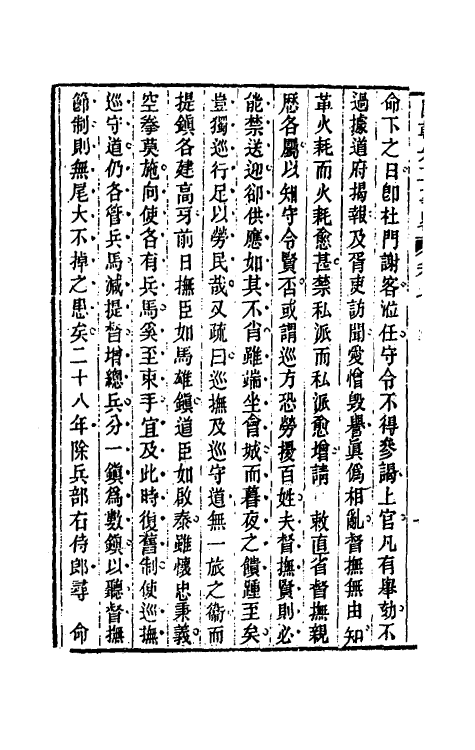 命下之日卽杜門謝客涖任守令不得參謁上官凡有舉劾不
過據道府揭報及胥吏訪聞愛憎毀譽眞僞相亂督撫無由知
革火耗而火耗愈甚禁私派而私派愈增請 敕直省督撫親
歷各屬以知守令賢否或謂巡方恐勞擾百姓夫督撫賢則必
能禁送迎卻供應如其不肖雖端坐會城而暮夜之饋踵至矣
豈獨巡行足以勞民哉又疏曰巡撫及巡守道無一旅之衞而
提鎭各建高牙前日撫臣如馬雄鎭道臣如啟泰雖懷忠秉義
空拳莫施向使各有兵馬奚至束手宜及此時復舊制使巡撫
巡守道仍各管兵馬減提督增總兵分一鎭爲數鎭以聽督撫
節制則無尾大不掉之患矣二十八年除兵部右侍郎尋 命